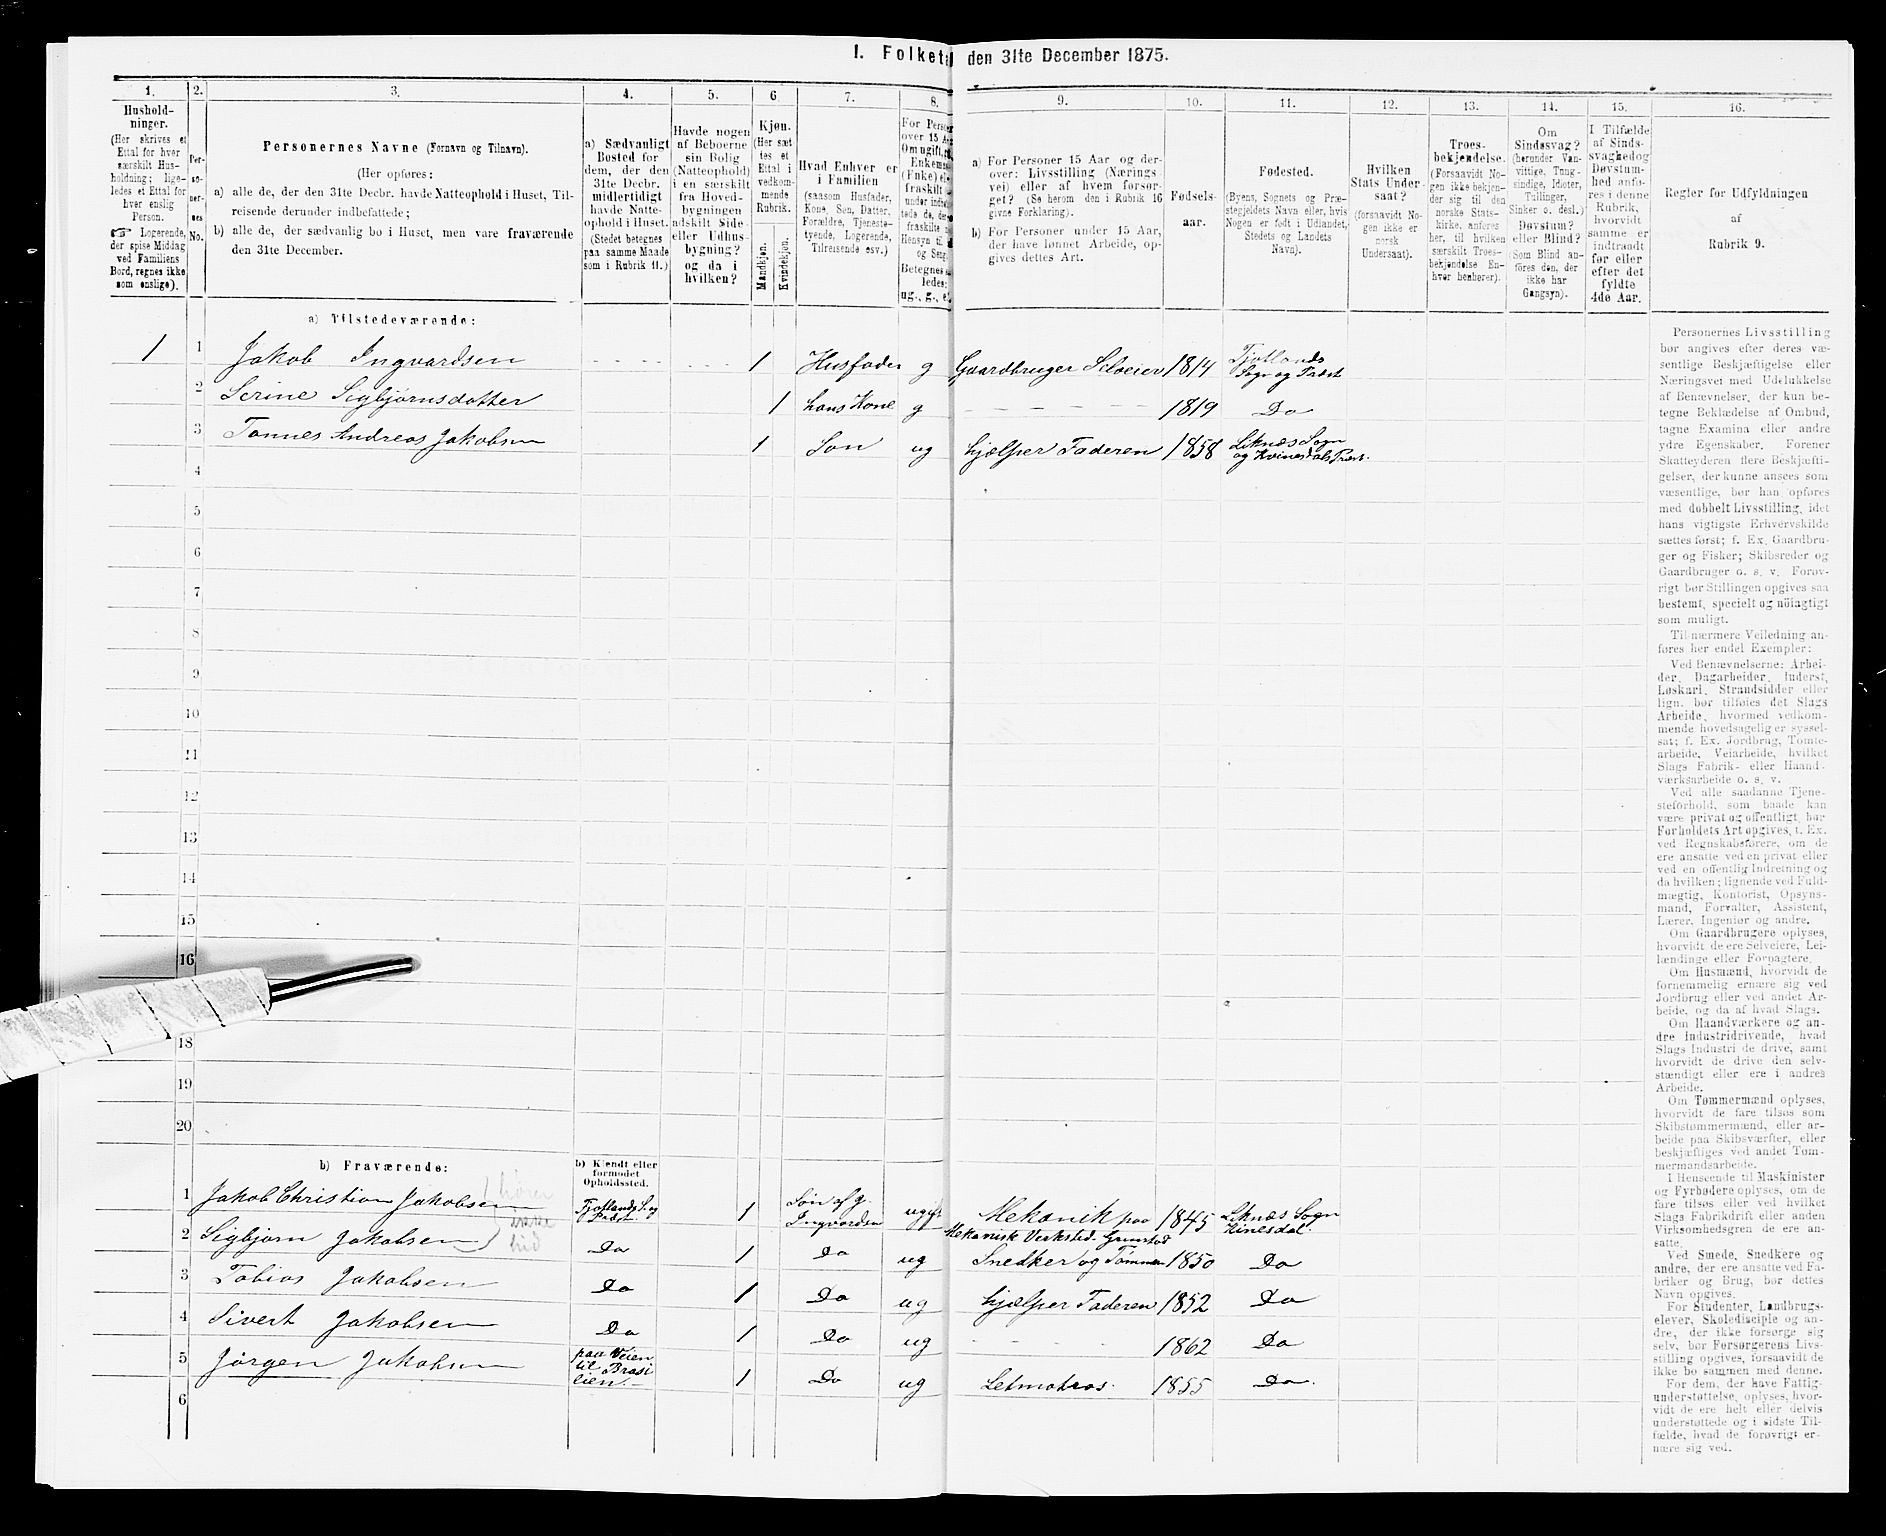 I. Folketæ den 31te December 1875.
1. 2. 3. 4. 5. 6 7. 8. 9. 10. 11. 12. 13. 14. 15. 16.
Hushold-
ninger.
(Her skrives et
Ettal for hver
særskilt Hus-
holdning; lige-
ledes et Ettal for
hver enslig
Person.
☞ Logerende,
der spise Middag
ved Familiens
Bord, regnes ikke
som enslige).
Per-
so-
ner-
nes
No.
Personernes Navne (Fornavn og Tilnavn).
(Her opføres:
a) alle de, der den 31te Decbr. havde Natteophold i Huset, Til-
reisende derunder indbefattede;
b) alle de, der sædvanlig bo i Huset, men vare fraværende
den 31te December.
a) Sædvanligt
Bosted for
dem, der den
31te Decbr.
midlertidigt
havde Natte-
ophold i Huset.
(Stedet betegnes
paa samme Maade
som i Rubrik 11.)
Havde nogen
af Beboerne
sin Bolig
(Natteophold)
i en særskilt
fra Hoved-
bygningen
adskilt Side-
eller Udhus-
bygning?
og da i
hvilken?
Kjøn.
(Her sæt-
tes et
Ettal i
vedkom-
mende
Rubrik.
Mandkjøn.
Kvindekjøn.
Hvad Enhver er
i Familien
(saasom Husfader,
Kone, Søn, Datter,
Forældre, Tjeneste-
tyende, Logerende,
Tilreisende osv.)
For Person
over 15 A
Om ugift,
Enkema
(Enke) el
fraskilt
ledes:
ug., g., e
a) For Personer 15 Aar og der-
over: Livsstilling (Nærings-
vei) eller af hvem forsør-
get? (Se herom den i Rubrik 16
givne Forklaring).
b) For Personer under 15 Aar,
der have lønnet Arbeide, op-
gives dettes Art.
Fødsels-
aar.
Fødested.
(Byens, Sognets og Præ-
stegjeldets Navn eller, hvis
Nogen er født i Udlandet,
Stedets og Landets
Navn).
Hvilken
Stats Under-
saat?
(forsaavidt No-
gen ikke er
norsk
Undersaat).
Troes-
bekjendelse.
(Forsaavidt No-
gen ikke bekjen-
der sig til den
norske Stats-
kirke, anføres
her, til hvilken
særskilt Troes-
bekjendelse En-
hver henhører).
Om
Sindssvag?
(herunder Van-
vittige, Tung-
sindige, Idioter,
Tullinger,
Sinker o. desl.)
Døvstum?
eller Blind?
(Som Blind an-
føres den, der
ikke har
Gangsyn).
I Tilfælde
af Sinds-
svaghed og
Døvstum-
hed anfø-
res i denne
Rubrik,
hvorvidt
samme er
indtraadt
før eller
efter det
fyldte
4de Aar.
Regler for Udfyldningen
af
Rubrik 9.
a) Tilstedeværende:
1 1 Jakob Ingvardsen 1 Husfader g Gaardbruger Selveier 1814 Fjotlands Sogn og Præst
2 Serine Sigbjørnsdatter 1 hans Kone g 1819 Do
3 Tønnes Andreas Jakobsen 1 Søn ug hjælper Faderen 1858 Liknæs Sogn og Kvinesdals Præst.
4
5
6
7
8
9
10
11
12
13
14
15
16
18
19
20
b) Fraværende:
b) Kjendt eller
formodet
Opholdssted.
1 Jakob Christian Jakobsen Fjotlands S. og Præst. 1 Søn af J. Ingvardsen ugift Mekanik paa Mekanisk Verksted. Grimstad 1845 Liknæs Sogn Kinesdal
2 Sigbjørn Jakobsen Do 1 Do ug Snedker og Tømmer 1850 Do
hører
ikke
hid
3 Tobias Jakobsen Do 1 Do ug hjælper Faderen 1852 Do
4 Sivert Jakobsen Do 1 Do ug 1862 Do
5 Jørgen Jakobsen paa Veien til Brasilien. 1 Do ug Letmatros. 1855 Do.
6
Personernes Livsstilling
bør angives efter deres væ-
sentlige Beskjæftigelse eller
Næringsvei med Udelukkelse
af Benævnelser, der kun be-
tegne Beklædelse af Ombud,
tagne Examina eller andre
ydre Egenskaber. Forener
Skatteyderen flere Beskjæfti-
gelser, der kunne ansees som
væsentlige, bør han opføres
med dobbelt Livsstilling, idet
hans vigtigste Erhvervskilde
sættes først; f. Ex. Gaardbru-
ger og Fisker; Skibsreder og
Gaardbruger o. s. v. Forøv-
rigt bør Stillingen opgives saa
bestemt, specielt og nöiagtigt
som muligt.
Til nærmere Veiledning an-
føres her endel Exempler:
Ved Benævnelserne: Arbei-
der, Dagarbeider, Inderst,
Løskarl, Strandsidder eller
lign. bør tilføies det Slags
Arbeide, hvormed vedkom-
mende hovedsagelig er syssel-
sat; f. Ex. Jordbrug, Tomte-
arbeide, Veiarbeide, hvilket
Slags Fabrik- eller Haand-
værksarbeide o. s. v.
Ved alle saadanne Tjene-
steforhold, som baade kan
være privat og offentligt, bør
Forholdets Art opgives, t. Ex.
ved Regnskabsførere, om de
ere ansatte ved en privat eller
ved en offentlig Indretning og
da hvilken; lignende ved Fuld-
mægtig, Kontorist, Opsyns-
mand, Forvalter, Assistent,
Lærer, Ingeniør og andre.
Om Gaardbrugere oplyses,
hvorvidt de ere Selveiere, Lei-
lændinge eller Forpagtere.
Om Husmænd, hvorvidt de
fornemmelig ernære sig ved
Jordbrug eller ved andet Ar-
beide, og da af hvad Slags.
Om Haandværkere og an-
dre Industridrivende, hvad
Slags Industri de drive, samt
hvorvidt de drive den selv-
stændigt eller ere i andres
Arbeide.
Om Tømmermænd oplyses,
hvorvidt de fare tilsøs som
Skibstømmermænd, eller ar-
beide paa Skibsværfter, eller
beskjæftiges ved andet Tøm-
mermandsarbeide.
I Henseende til Maskinister
og Fyrbødere oplyses, om de
fare tilsøs eller ved hvilket
Slags Fabrikdrift eller anden
Virksomhedsgren de ere an-
satte.
Ved Smede, Snedkere og
andre, der ere ansatte ved Fa-
briker og Brug, bør dettes
Navn opgives.
For Studenter, Landbrugs-
elever, Skoledisciple og an-
dre, der ikke forsørge sig
selv, bør Forsørgerens Livs-
stilling opgives, forsaavidt de
ikke bo sammen med denne.
For dem, der have Fattig-
understøttelse, oplyses, hvor-
vidt de ere helt eller delvis
understøttede og i sidste Til-
fælde, hvad de forøvrigt er-
nære sig ved.